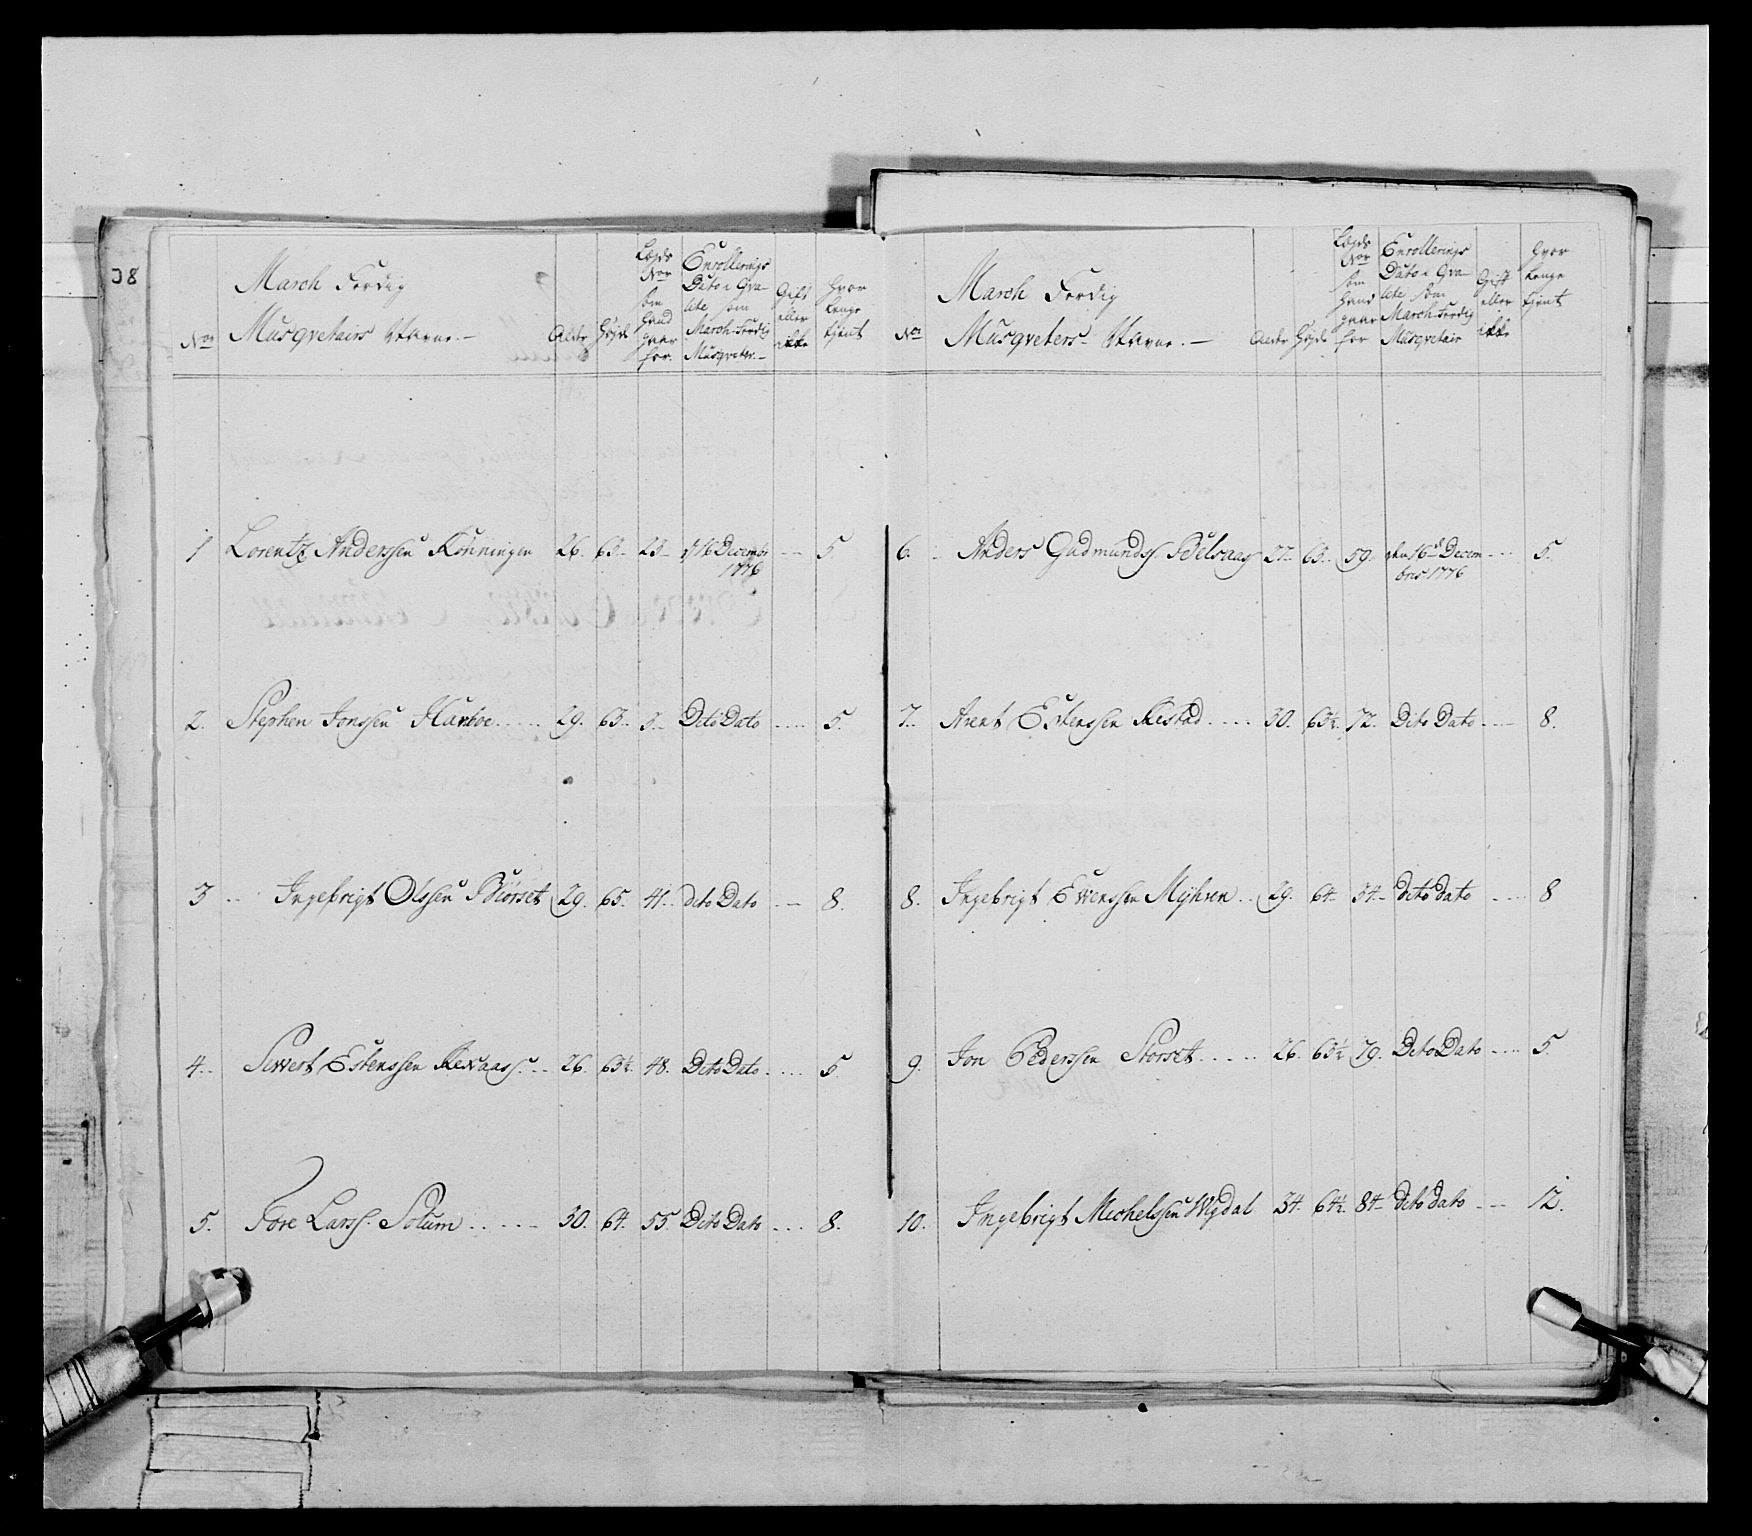 38
March Ferdig
Musqveteirs Navne.—
No
Alder
Højde
Lægds Nor som hand gaar for.
Enrollerings Dato i Qvalite som March-Ferdig Musqveter.—
Gift eller ikke
Hvor lenge tient
1 Lorentz Anderssen Rønningen 26. 63.. 23.. d/16 Decembr 1776 --- 5.
2. Stephen Jonssen Harboe..... 29. 63.. 5.. Dito Dato ..... 5.
3 .. Ingebrigt Olssen Biörset 29. 65. 41.. dito Dato .. — 8.
4.. Siwert Estenssen Rexaass... 26. 63½. 48. Dito Dato ..... 5.
5. Tore Larss. Solum..... 30. 64. 55. Dito Dato .... 8.
March Ferdig
Musqveters Navne.—
No
Alder
Højde
Lægds Nor som hand gaar for
Enrollerings Dato i Qvalite som March-Ferdig Musqvetair
Gift eller ikke
Hvor lenge tient
6. Anders Gudmunds. Bølsaas 27.. 63... 59. den 16de Decembris 1776 .... 5.
7. Arent Estenssen Restad..... 30. 63½. 72. Dito Dato .... 8.
8. Ingebrigt Evenssen Myhren.. 29. 64. 34.. dito dato .... 8
9. Jon Pederssen Storset..... 26. 63½ 79. Dito Dato .... 5.
10. Ingebrigt Michelssen Wigdal 34. 64½. 84.. dito dato ... 12.